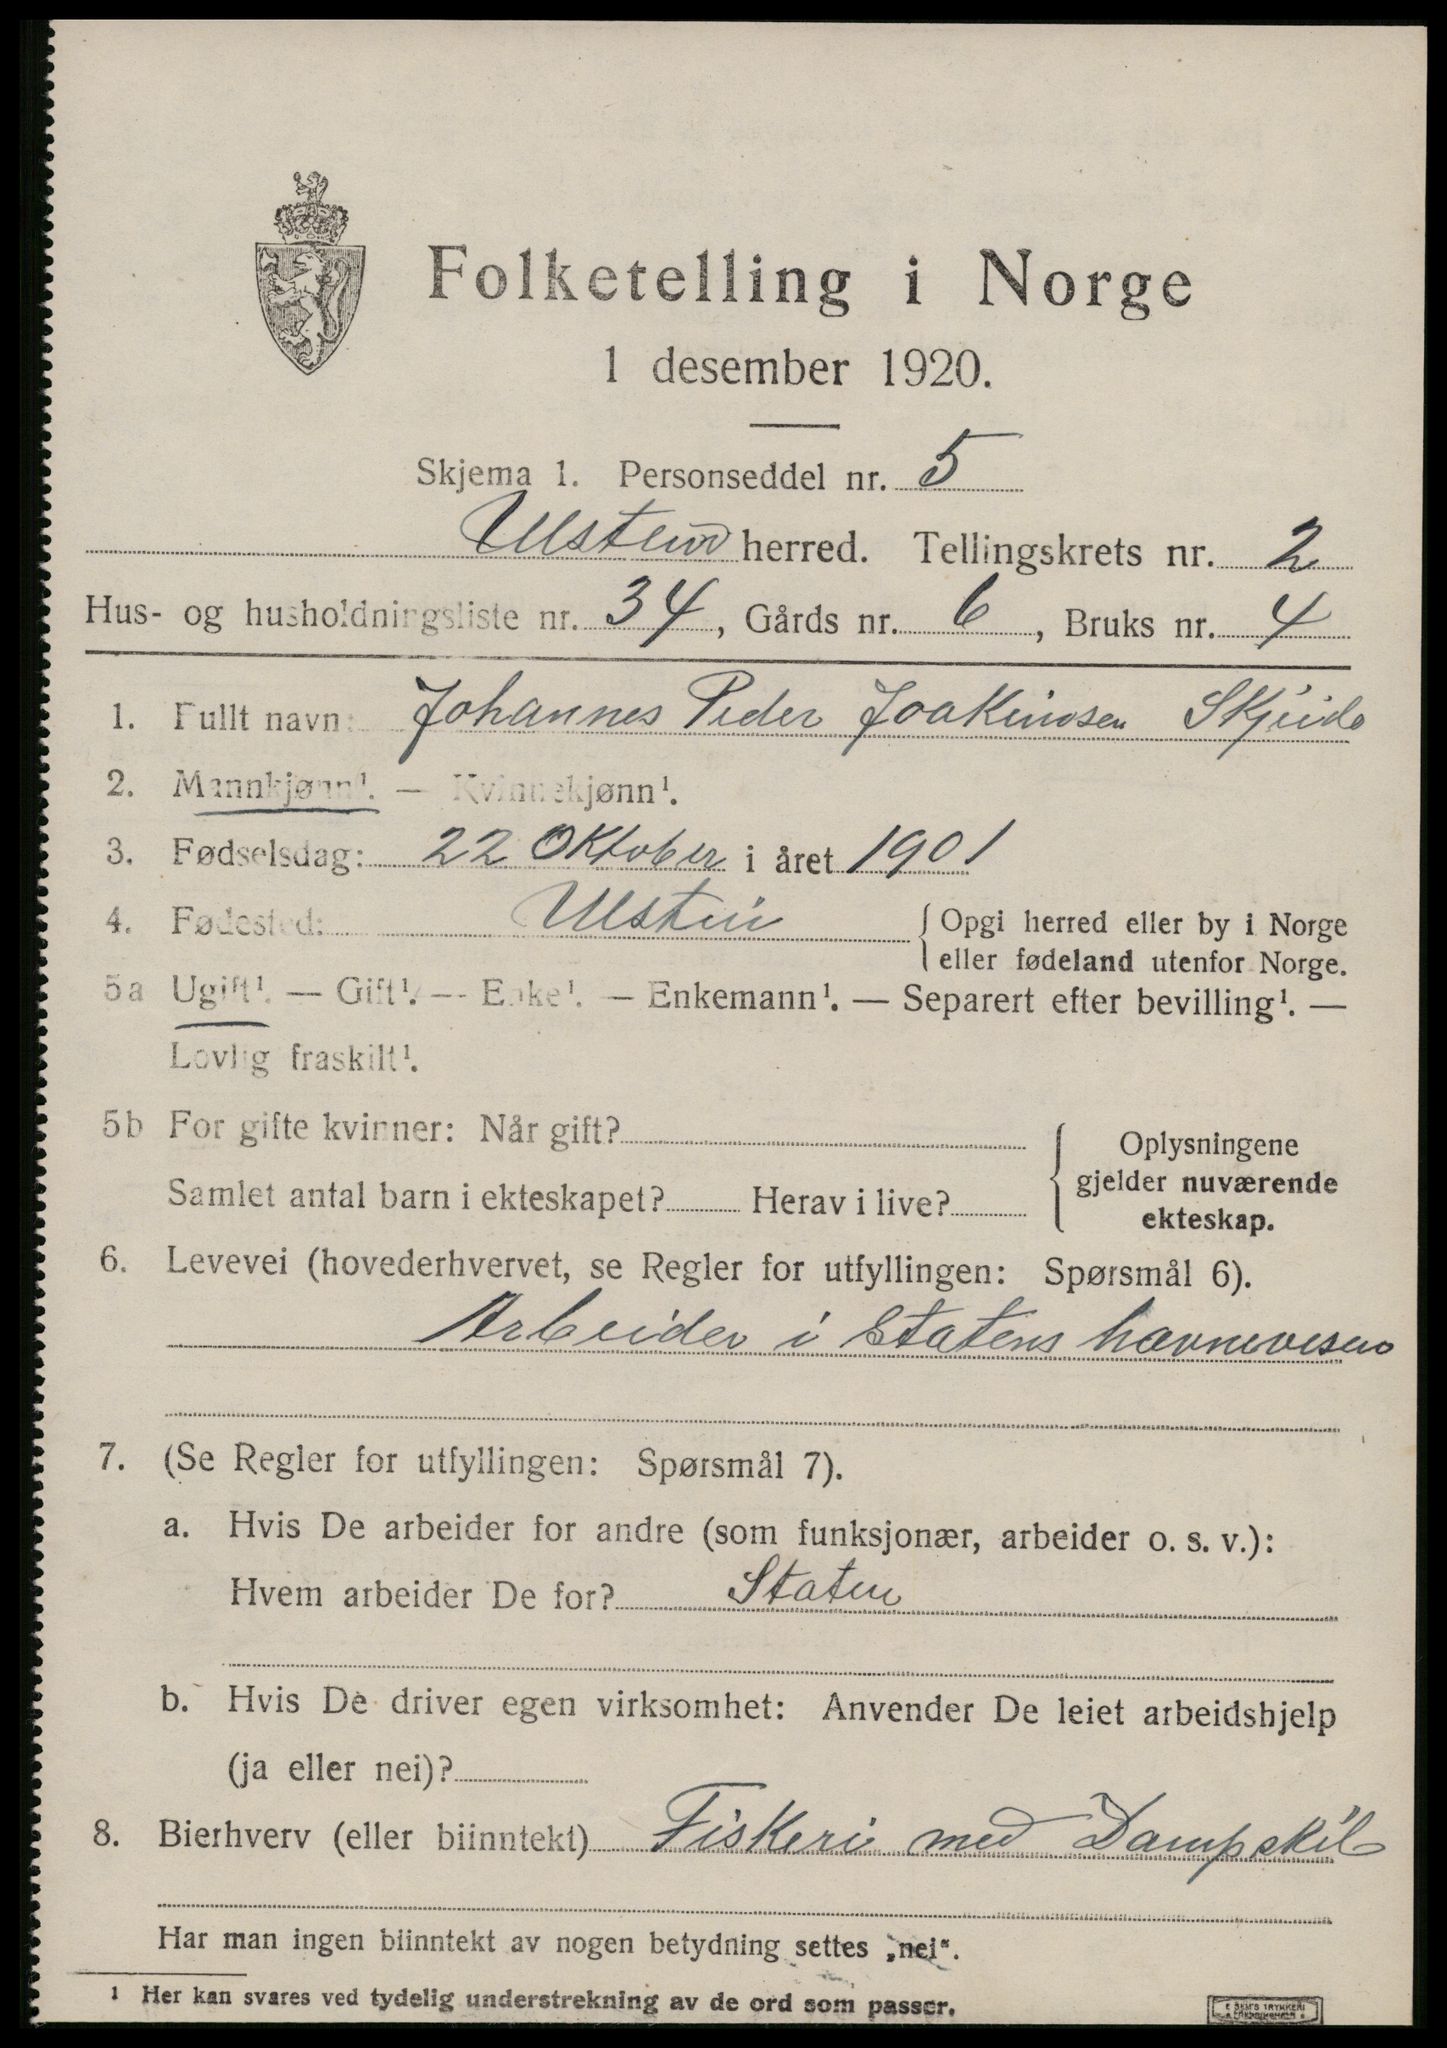 Folketelling i Norge
1 desember 1920.
Skjema 1. Personseddel nr. 5
Ulstein herred. Tellingskrets nr. 2
Hus- og husholdningsliste nr. 34, Gårds nr. 6, Bruks nr. 4
1. Fullt navn: Johannes Peder Joakimsen Skjeide
2. Mannkjønn¹. — Kvinnekjønn¹.
3. Fødselsdag: 22 Oktober i året 1901
4. Fødested: Ulstein { Opgi herred eller by i Norge
eller fødeland utenfor Norge.
5a Ugift¹. — Gift¹. — Enke¹. — Enkemann¹. — Separert efter bevilling¹. —
Lovlig fraskilt¹.
5b For gifte kvinner: Når gift?
Samlet antal barn i ekteskapet? Herav i live?
Oplysningene
gjelder nuværende
ekteskap.
6. Levevei (hovederhvervet, se Regler for utfyllingen: Spørsmål 6).
Arbeider i Statens havnevesen
7. (Se Regler for utfyllingen: Spørsmål 7).
a. Hvis De arbeider for andre (som funksjonær, arbeider o. s. v.):
Hvem arbeider De for? Staten
b. Hvis De driver egen virksomhet: Anvender De leiet arbeidshjelp
(ja eller nei)?
8. Bierhverv (eller biinntekt) Fiskeri med Dampskib
Har man ingen biinntekt av nogen betydning settes „nei“.
¹ Her kan svares ved tydelig understrekning av de ord som passer.